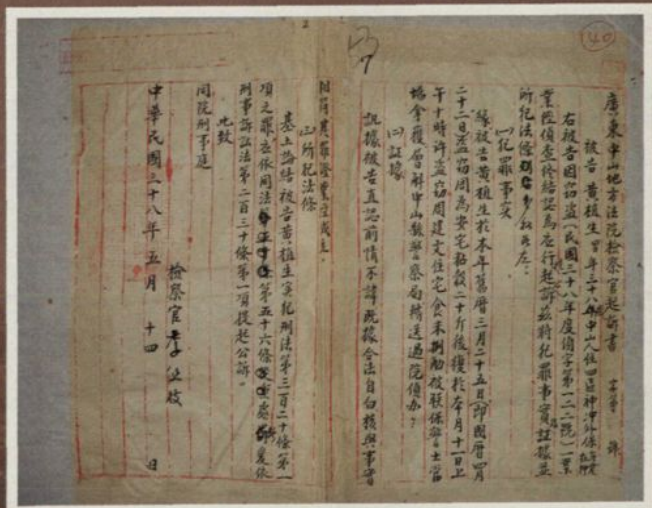 140
7
廣東中山地方法院檢察官起訴書 字第 號
被告 黃植生 男年三十八歲中山人住四區神沖外保
右被告因竊盜(民國三十八年度偵字第一二二號)一案
業經偵查終結認為應行起訴茲將犯罪事實証據並
所犯法條 如左:
(一)犯罪事实
緣被告黃植生於本年舊曆三月二十五日(即國曆四月
二十二日)盜窃周為安宅穀二十斤後復於本月十一日上
午十時許盜窃周建文住宅食米捌觔被联保警士當
塲拿獲層解中山縣警察局轉送過院偵办。
(二)証據
訊據被告直認前情不諱既據合法自白核與事實
相符其罪證業經成立。
(三)所犯法條
基上論結被告黃植生实犯刑法第三百二十條第一
項之罪应依同法第五十六條 處斷爰依
刑事訴訟法第二百三十條第一項提起公訴。
此致
同院刑事庭
檢察官李
中華民國三十八年五月十四日